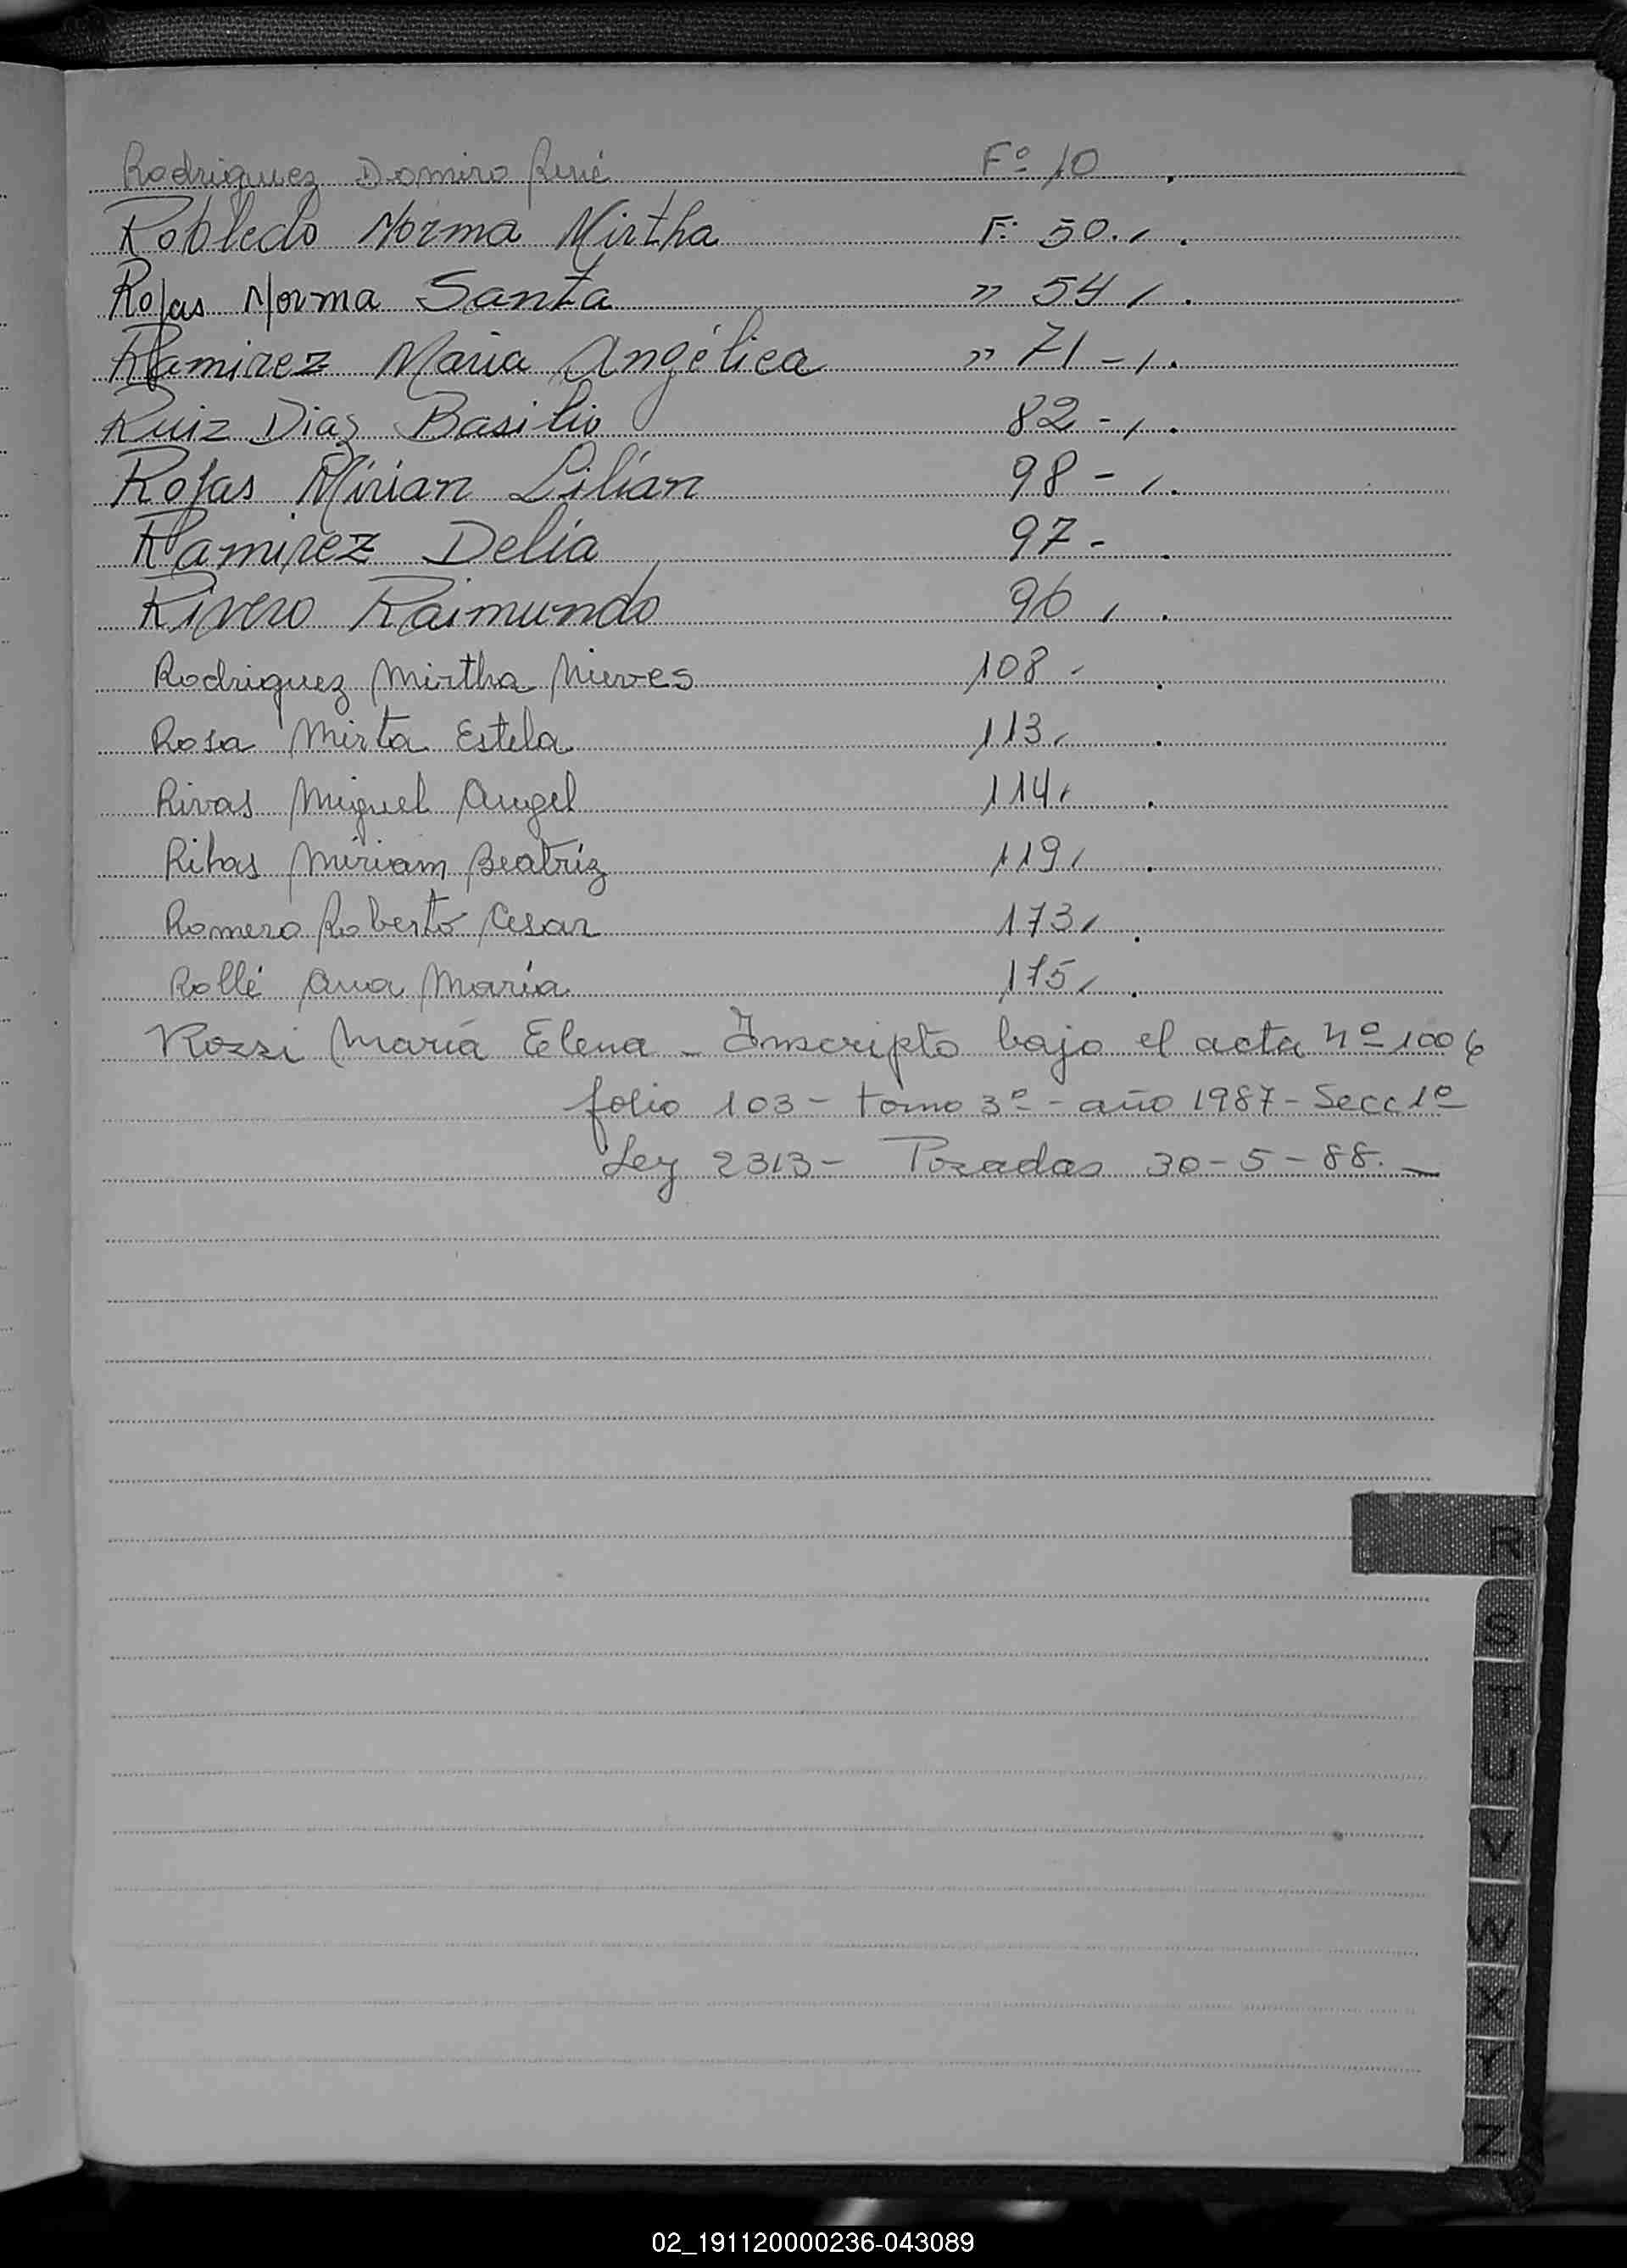 Rodriguez Domiro René Fº 10
Robledo Norma Mirtha F: 50.
Rojas Norma Santa " 54
Ramirez Maria Angélica " 71 -
Ruiz Diaz Basilio 82 -
Rojas Mirian Lilian 98 -
Ramirez Delia 97 -
Rivero Raimundo 96
Rodriguez Mirtha Nieves 108 -
Rosa Mirta Estela 113
Rivas Miguel Angel 114
Ribas Miriam Beatriz 119
Romero Roberto Cesar 173
Rollé Ana Maria 175
Rossi María Elena - Inscripto bajo el acta nº 1006
folio 103 - tomo 3º - año 1987 - Secc 1º
Ley 2313 - Posadas 30-5-88. -
R
S
T
U
V
W
X
Y
Z
02_191120000236-043089